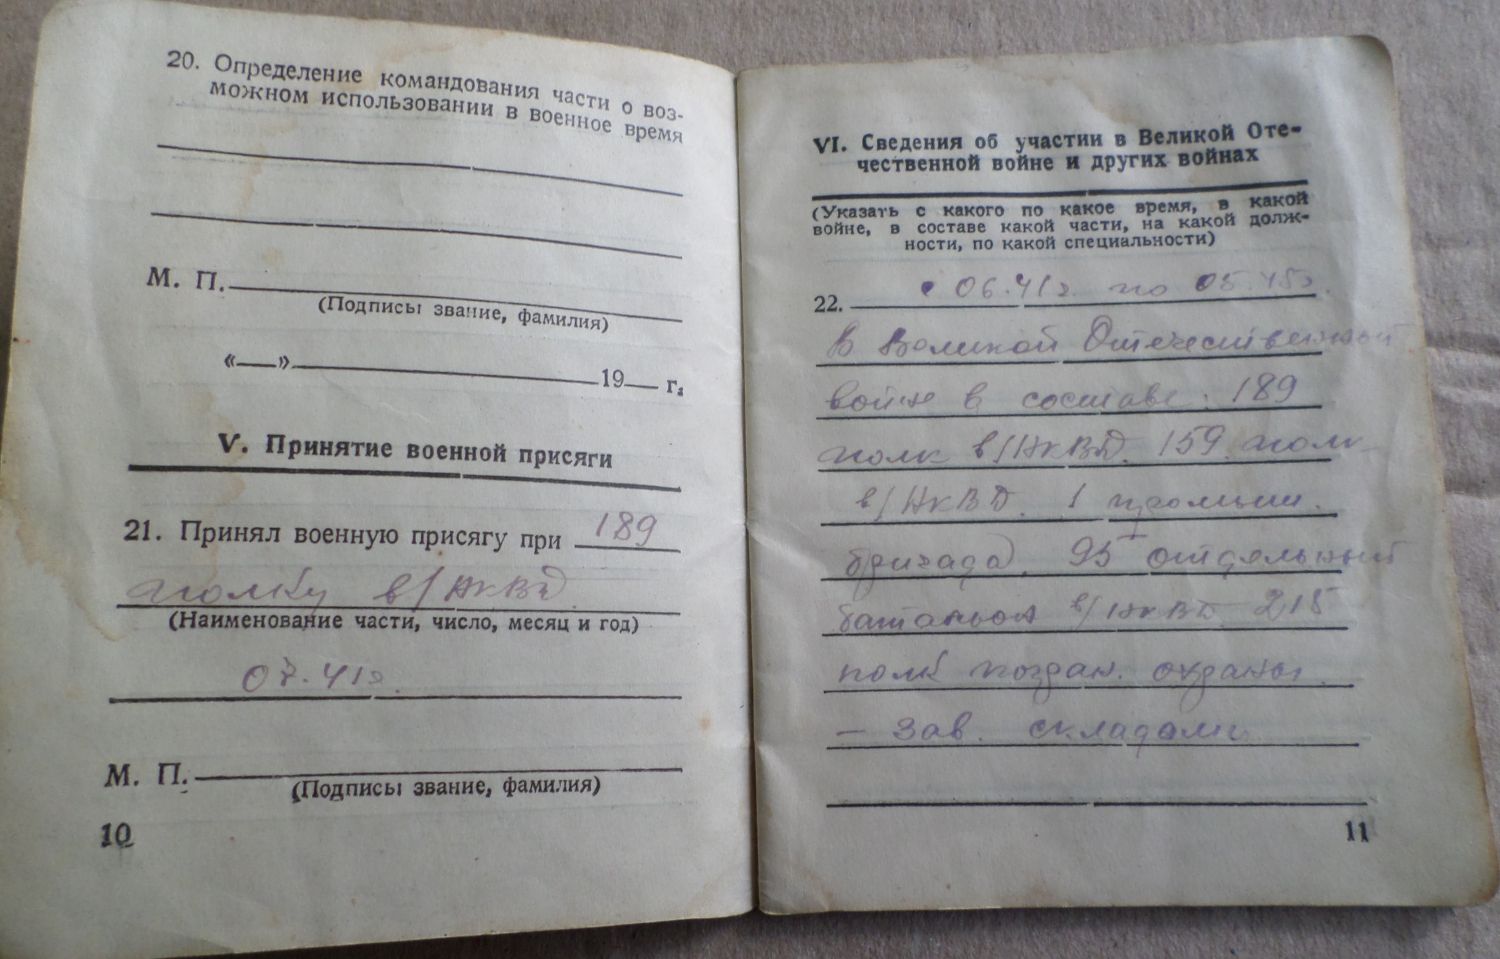 20. Определение командования части о воз-
можном использовании в военное время
М. П.
(Подписы звание, фамилия)
«—» 19— г.
V. Принятие военной присяги
21. Принял военную присягу при 189
полку в/НКВД
(Наименование части, число, месяц и год)
07.41г.
М. П.
(Подписы звание, фамилия)
10
VI. Сведения об участии в Великой Оте-
чественной войне и других войнах
(Указать с какого по какое время, в какой
войне, в составе какой части, на какой долж-
ности, по какой специальности)
22. с 06.41г. по 05.45г.
В Великой Отечественной
войне в составе: 189
полк в/НКВД. 159 полк
в/НКВД. 1
бригада. 95 отдельный
батальон в/НКВД. 215
полк охраны.
– зав. складами
11